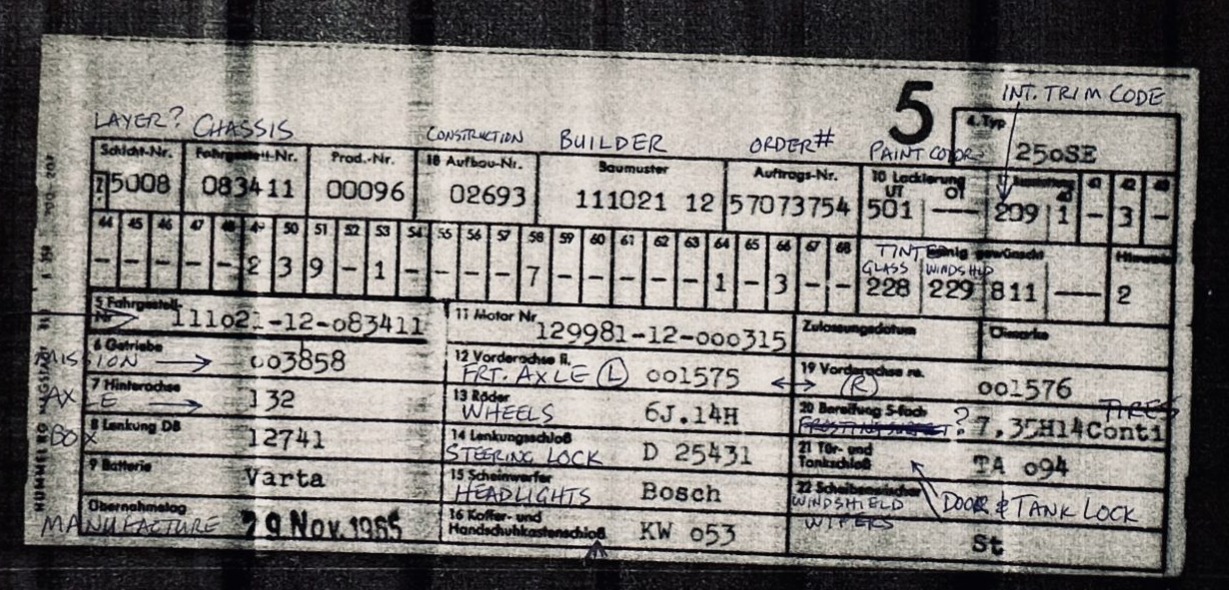 5
INT. TRIM CODE
LAYER? CHASSIS CONSTRUCTION BUILDER ORDER# PAINT COLOR
4. Typ
250SE
Schicht-Nr. Fahrgestell-Nr. Prod.-Nr. 18 Aufbau-Nr. Baumuster Auftrags-Nr. 10 Lackierung 41 42
UT
5008 083411 00096 02693 111021 12 57073754 501 — 209 1 - 3 -
44 45 46 47 48 49 50 51 52 53 54 55 56 57 58 59 60 61 62 63 64 65 66 67 68
TINTED gewünscht Hinweis
GLASS WINDSHLD
- - - - - 2 3 9 - 1 - - - - 7 - - - - - 1 - 3 - - 228 229 811 — 2
5 Fahrgestell-Nr 111021-12-083411
11 Motor Nr 129981-12-000315
Zulassungsdatum
6 Getriebe 003858
MISSION
12 Vorderachse li. 001575
FRT. AXLE (L)
19 Vorderachse re. 001576
(R)
7 Hinterachse 132
AXLE
13 Räder 6J.14H
WHEELS
20 Bereifung 5-fach 7,35H14Conti
? TIRES
8 Lenkung DB 12741
BOX
14 Lenkungsschloß D 25431
STEERING LOCK
21 Tür- und Tankschloß TA 094
DOOR & TANK LOCK
9 Batterie Varta
15 Scheinwerfer Bosch
HEADLIGHTS
22 Scheibenwischer
WINDSHIELD WIPERS
St
Übernahmetag
MANUFACTURE 29 Nov. 1965
16 Koffer- und Handschuhkastenschloß KW 053